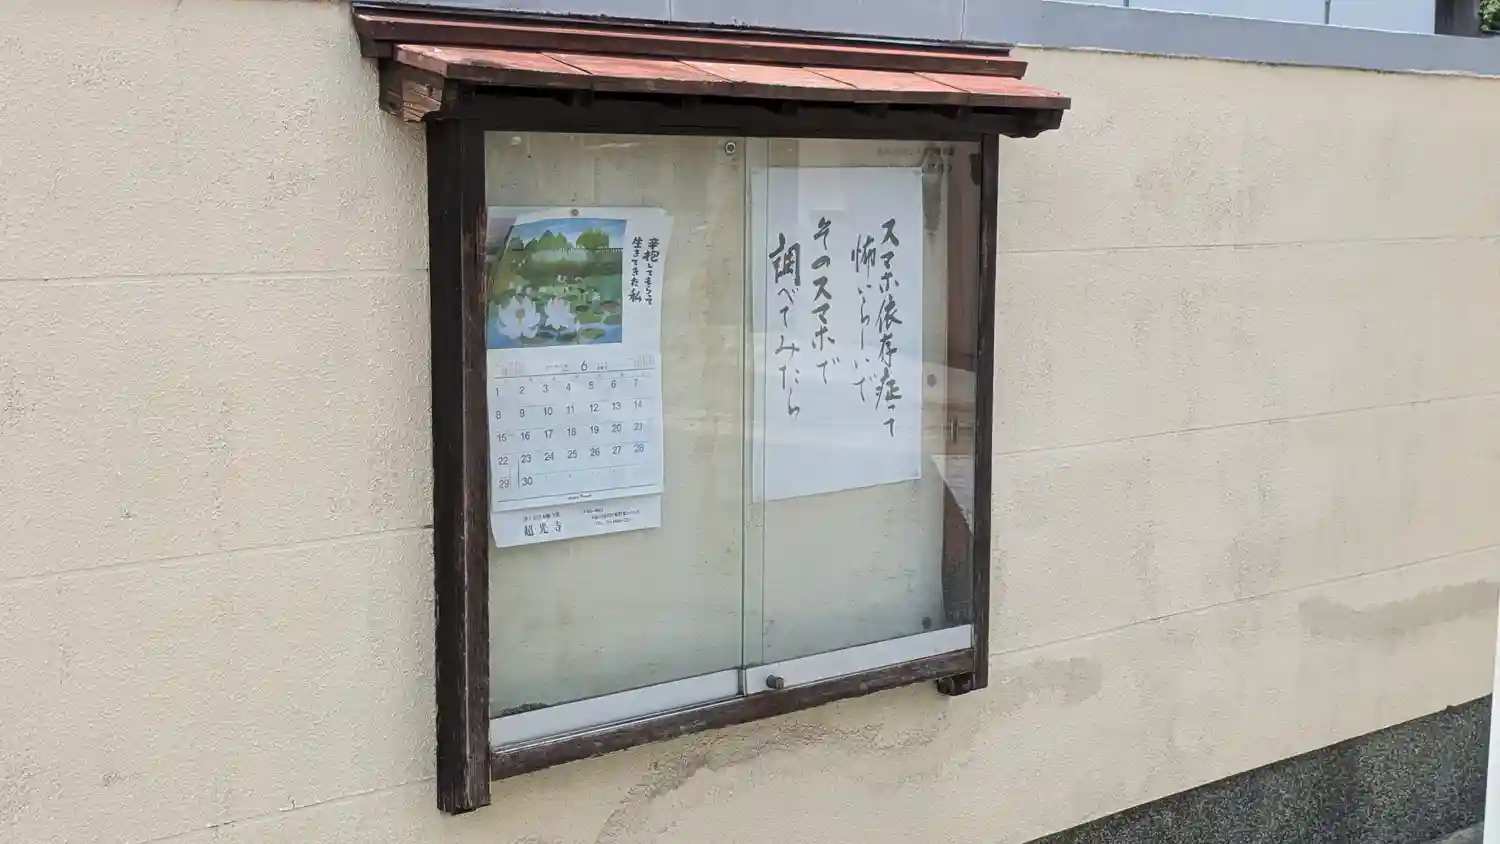 スマホ依存症って
怖いらしいで
そのスマホで
調べてみたら
辛抱してもらって
生きてきた私
6
1 2 3 4 5 6 7
8 9 10 11 12 13 14
15 16 17 18 19 20 21
22 23 24 25 26 27 28
29 30
超光寺